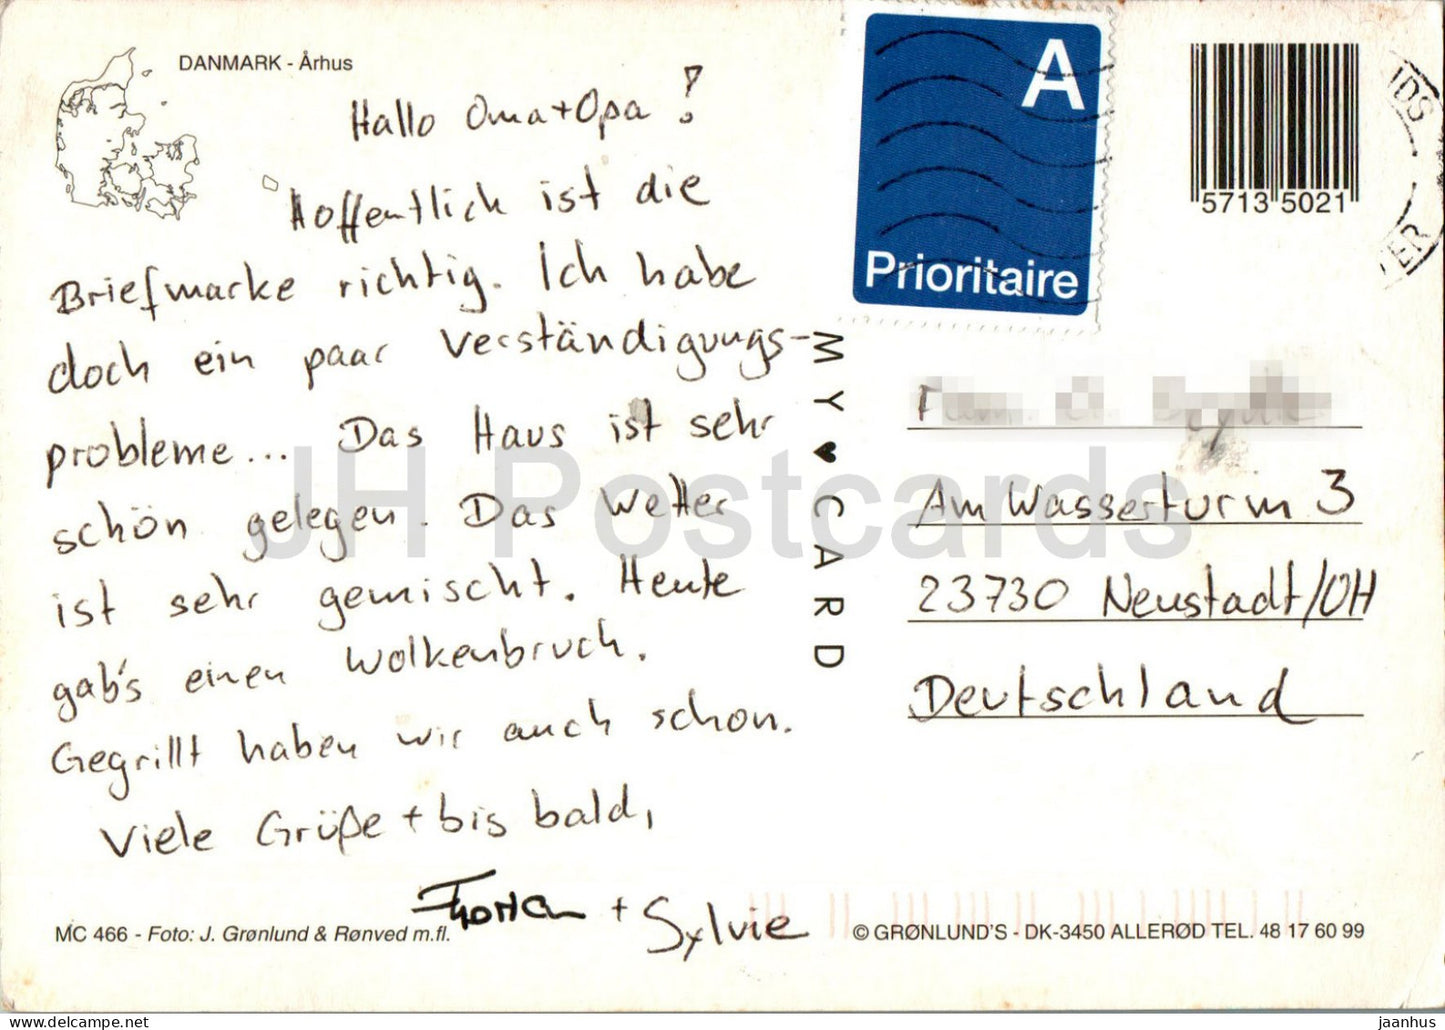 DANMARK - Århus
Hallo Oma + Opa!
Hoffentlich ist die
Briefmarke richtig. Ich habe
doch ein paar Verständigungs-
probleme... Das Haus ist sehr
schön gelegen. Das Wetter
ist sehr gemischt. Heute
gab's einen Wolkenbruch.
Gegrillt haben wir auch schon.
Viele Grüße + bis bald,
+ Sylvie
MC 466 - Foto: J. Grønlund & Rønved m.fl.
MY ♥ CARD
A
Prioritaire
5713 5021
Am Wasserturm 3
23730 Neustadt/OH
Deutschland
© GRØNLUND'S - DK-3450 ALLERØD TEL. 48 17 60 99
JH Postcards
hipstamp.com/jaanhus